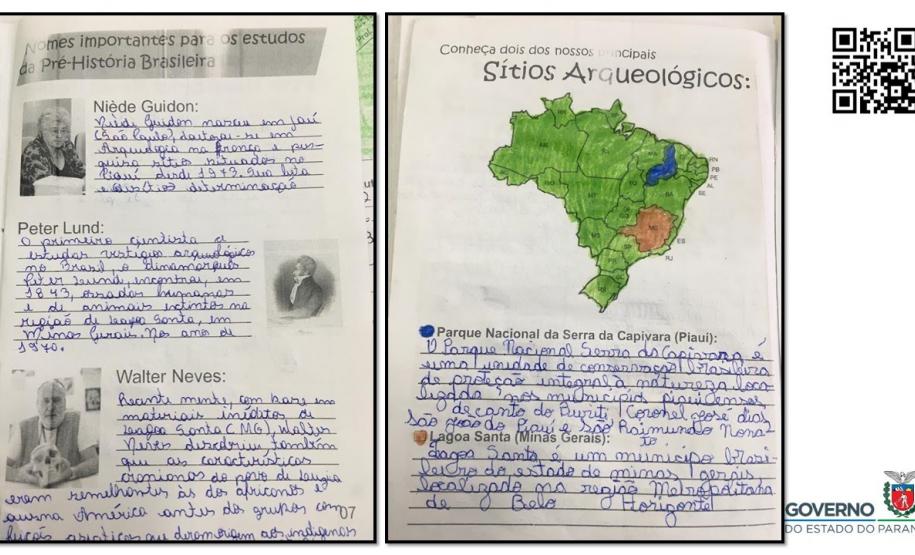 Nomes importantes para os estudos
da Pré-História Brasileira
Niède Guidon:
Niède Guidon nasceu em Jaú
(São Paulo), doutorou-se em
Arqueologia na França e pes-
quisa sítios situados no
Piauí desde 1973. Sua luta
determinação
Peter Lund:
O primeiro cientista a
estudar vestígios arqueológicos
no Brasil, o dinamarquês
Peter Lund, encontrou, em
1843, ossadas humanas
e de animais extintos na
região de Lagoa Santa, em
Minas Gerais. Nos anos de
1970.
Walter Neves:
Recente mente, com base em
materiais inéditos de
Lagoa Santa (MG), Walter
Neves descobriu também
que as características
cranianas do povo de Luzia
eram semelhantes às dos africanos e
América antes dos grupos com
07
asiáticas que deram origem aos indígenas
Conheça dois dos nossos principais
Sítios Arqueológicos:
RN
PB
PE
AL
SE
BA
TO
MT
GO
MG
MS
SP
ES
RJ
RS
Parque Nacional da Serra da Capivara (Piauí):
O Parque Nacional Serra da Capivara é
uma unidade de conservação brasileira
de proteção integral à natureza loca
lizada nos municípios piauienses
de canto do Buriti, Coronel José dias
São João do Piauí e São Raimundo Nona
to
Lagoa Santa (Minas Gerais):
Lagoa Santa é um município brasi-
leiro do estado de minas gerais
localizado na região Metropolitana
de Belo Horizonte
GOVERNO
DO ESTADO DO PARAN